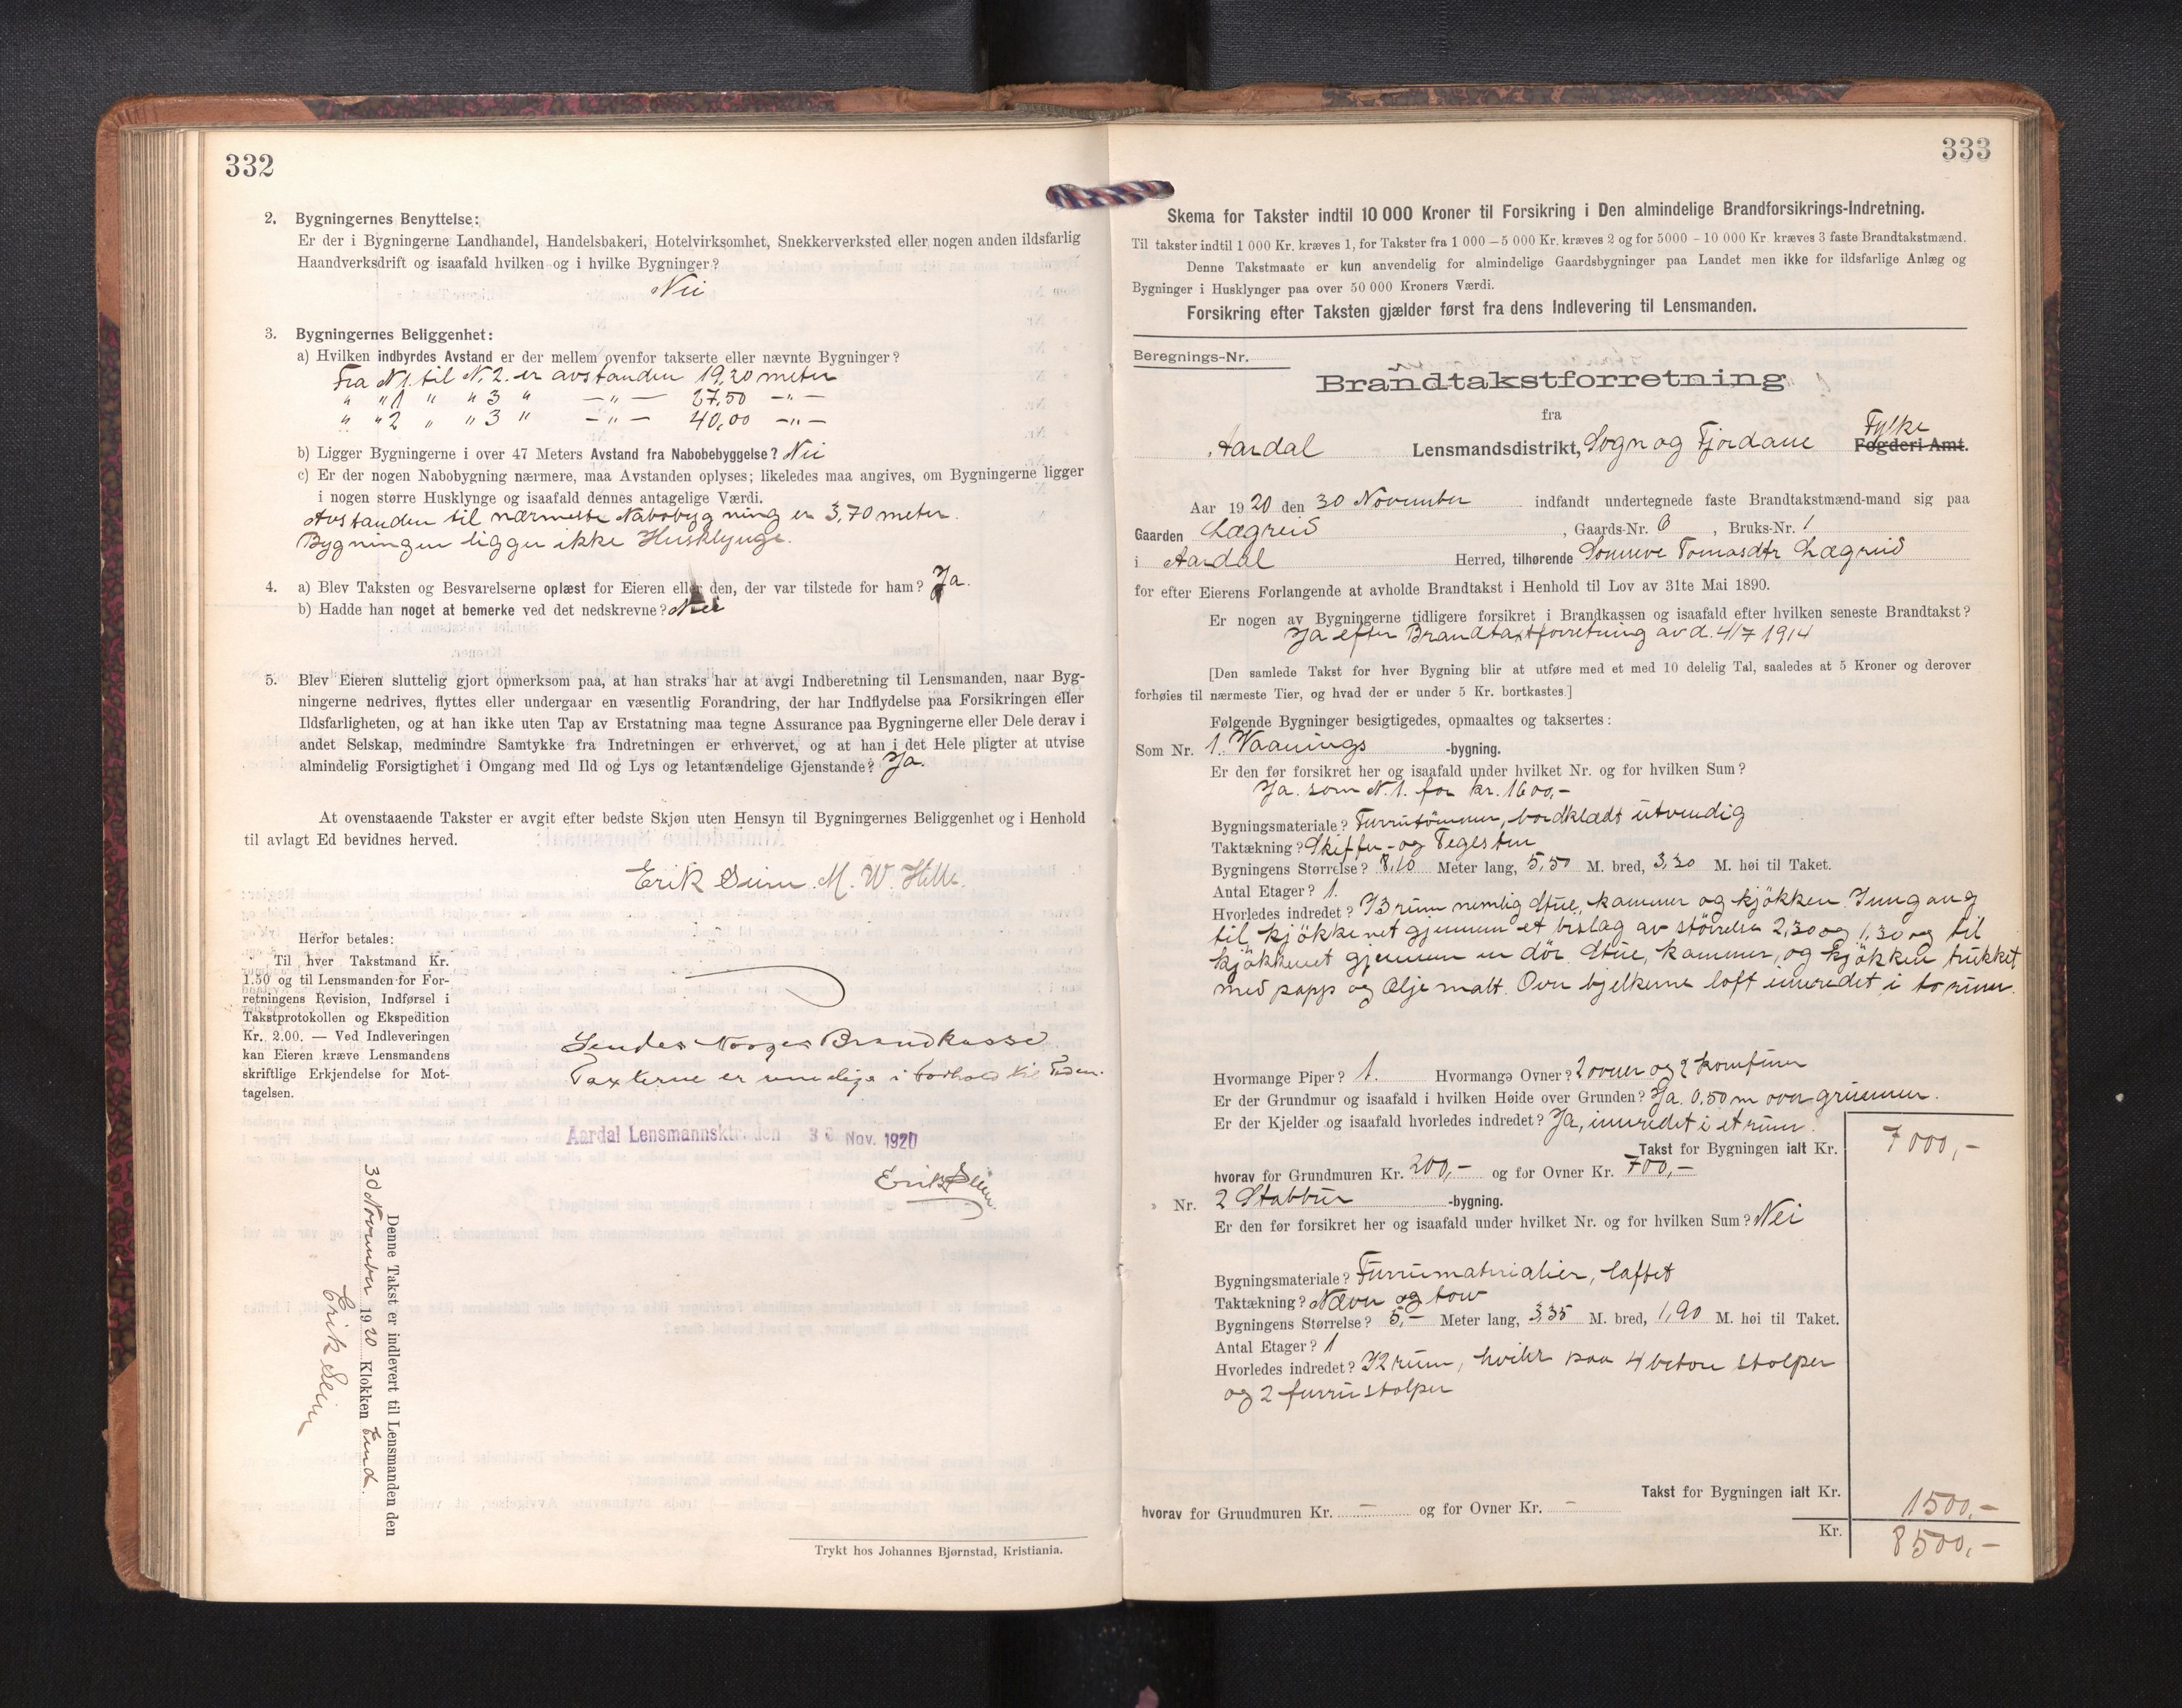 332
2. Bygningernes Benyttelse:
Er der i Bygningerne Landhandel, Handelsbakeri, Hotelvirksomhet, Snekkerverksted eller nogen anden ildsfarlig
Haandverksdrift og isaafald hvilken og i hvilke Bygninger?
Nei
3. Bygningernes Beliggenhet:
a) Hvilken indbyrdes Avstand er der mellem ovenfor takserte eller nævnte Bygninger?
Fra N 1. til N. 2. er avstanden 19,20 meter
" " 1 " " 3 " —"— 27,50 —"—
" " 2 " " 3 " —"— 40,00 —"—
b) Ligger Bygningerne i over 47 Meters Avstand fra Nabobebyggelse? Nei
c) Er der nogen Nabobygning nærmere, maa Avstanden oplyses; likeledes maa angives, om Bygningerne ligger
i nogen større Husklynge og isaafald dennes antagelige Værdi.
Avstanden til nærmeste Nabobygning er 3,70 meter.
Bygningen ligger ikke Husklynge.
4. a) Blev Taksten og Besvarelserne oplæst for Eieren eller den, der var tilstede for ham? Ja.
b) Hadde han noget at bemerke ved det nedskrevne? Nei
5. Blev Eieren sluttelig gjort opmerksom paa, at han straks har at avgi Indberetning til Lensmanden, naar Byg-
ningerne nedrives, flyttes eller undergaar en væsentlig Forandring, der har Indflydelse paa Forsikringen eller
Ildsfarligheten, og at han ikke uten Tap av Erstatning maa tegne Assurance paa Bygningerne eller Dele derav i
andet Selskap, medmindre Samtykke fra Indretningen er erhvervet, og at han i det Hele pligter at utvise
almindelig Forsigtighet i Omgang med Ild og Lys og letantændelige Gjenstande? Ja.
At ovenstaaende Takster er avgit efter bedste Skjøn uten Hensyn til Bygningernes Beliggenhet og i Henhold
til avlagt Ed bevidnes herved.
Erik Seim. M. W. Hille.
Herfor betales:
Til hver Takstmand Kr.
1.50 og til Lensmanden for For-
retningens Revision, Indførsel i
Takstprotokollen og Ekspedition
Kr. 2.00. — Ved Indleveringen
kan Eieren kræve Lensmandens
skriftlige Erkjendelse for Mot-
tagelsen.
Sendes Norges Brandkasse.
Taxterne er rimelige i forhold til Tiden.
Aardal Lensmannsktr. den 30. Nov. 1920
Erik Seim.
Denne Takst er indlevert til Lensmanden den
30 November 1920 Klokken
Erik Seim
Trykt hos Johannes Bjørnstad, Kristiania.
333
Skema for Takster indtil 10 000 Kroner til Forsikring i Den almindelige Brandforsikrings-Indretning.
Til takster indtil 1 000 Kr. kræves 1, for Takster fra 1 000 — 5 000 Kr. kræves 2 og for 5000 - 10 000 Kr. kræves 3 faste Brandtakstmænd.
Denne Takstmaate er kun anvendelig for almindelige Gaardsbygninger paa Landet men ikke for ildsfarlige Anlæg og
Bygninger i Husklynger paa over 50 000 Kroners Værdi.
Forsikring efter Taksten gjælder først fra dens Indlevering til Lensmanden.
Beregnings-Nr.
Brandtakstforretning
fra
Fylke
Aardal Lensmandsdistrikt, Sogn og Fjordane Fogderi Amt.
Aar 1920 den 30 November indfandt undertegnede faste Brandtakstmænd-mand sig paa
Gaarden Lægreid, Gaards-Nr. 6, Bruks-Nr. 1
i Aardal Herred, tilhørende Sønneve Tomasdtr Lægreid
for efter Eierens Forlangende at avholde Brandtakst i Henhold til Lov av 31te Mai 1890.
Er nogen av Bygningerne tidligere forsikret i Brandkassen og isaafald efter hvilken seneste Brandtakst?
Ja efter Brandtaxtforretning av d. 4/7 1914
[Den samlede Takst for hver Bygning blir at utføre med et med 10 delelig Tal, saaledes at 5 Kroner og derover
forhøies til nærmeste Tier, og hvad der er under 5 Kr. bortkastes.]
Følgende Bygninger besigtigedes, opmaaltes og taksertes:
Som Nr. 1. Vaanings -bygning.
Er den før forsikret her og isaafald under hvilket Nr. og for hvilken Sum?
Ja. som N. 1. for kr. 1600,-
Bygningsmateriale? Furrutømmer, bordklædt utvendig
Taktækning? Skiffer- og Teglsten
Bygningens Størrelse? 8,10 Meter lang, 5,50 M. bred, 3,20 M. høi til Taket.
Antal Etager? 1.
Hvorledes indredet? I 3 rum nemlig stue, kammer og kjøkken. Inngang
til kjøkkenet gjennem et bislag av størrelse 2,30 og 1,30 og til
kjøkkenet gjennem en dör. Stue, kammer, og kjøkken trukket
med papp og oljemalt. Over bjelkerne loft inredet i to rum.
Hvormange Piper? 1. Hvormange Ovner? 2 ovner og 2 komfurer
Er der Grundmur og isaafald i hvilken Høide over Grunden? Ja. 0,50 m over grunnen.
Er der Kjelder og isaafald hvorledes indredet? Ja, inredet i et rum.
Takst for Bygningen ialt Kr. 7000,-
hvorav for Grundmuren Kr. 200,- og for Ovner Kr. 700,-
Nr. 2 Stabbur -bygning.
Er den før forsikret her og isaafald under hvilket Nr. og for hvilken Sum? Nei
Bygningsmateriale? Furrumaterialier, laftet
Taktækning? Næver og torv
Bygningens Størrelse? 5,- Meter lang, 3,35 M. bred, 1,90 M. høi til Taket.
Antal Etager? 1
Hvorledes indredet? I 2 rum, hviler paa 4 beton stolper
og 2 furrustolper
Takst for Bygningen ialt Kr. 1500,-
hvorav for Grundmuren Kr. - og for Ovner Kr. -
Kr. 8500,-